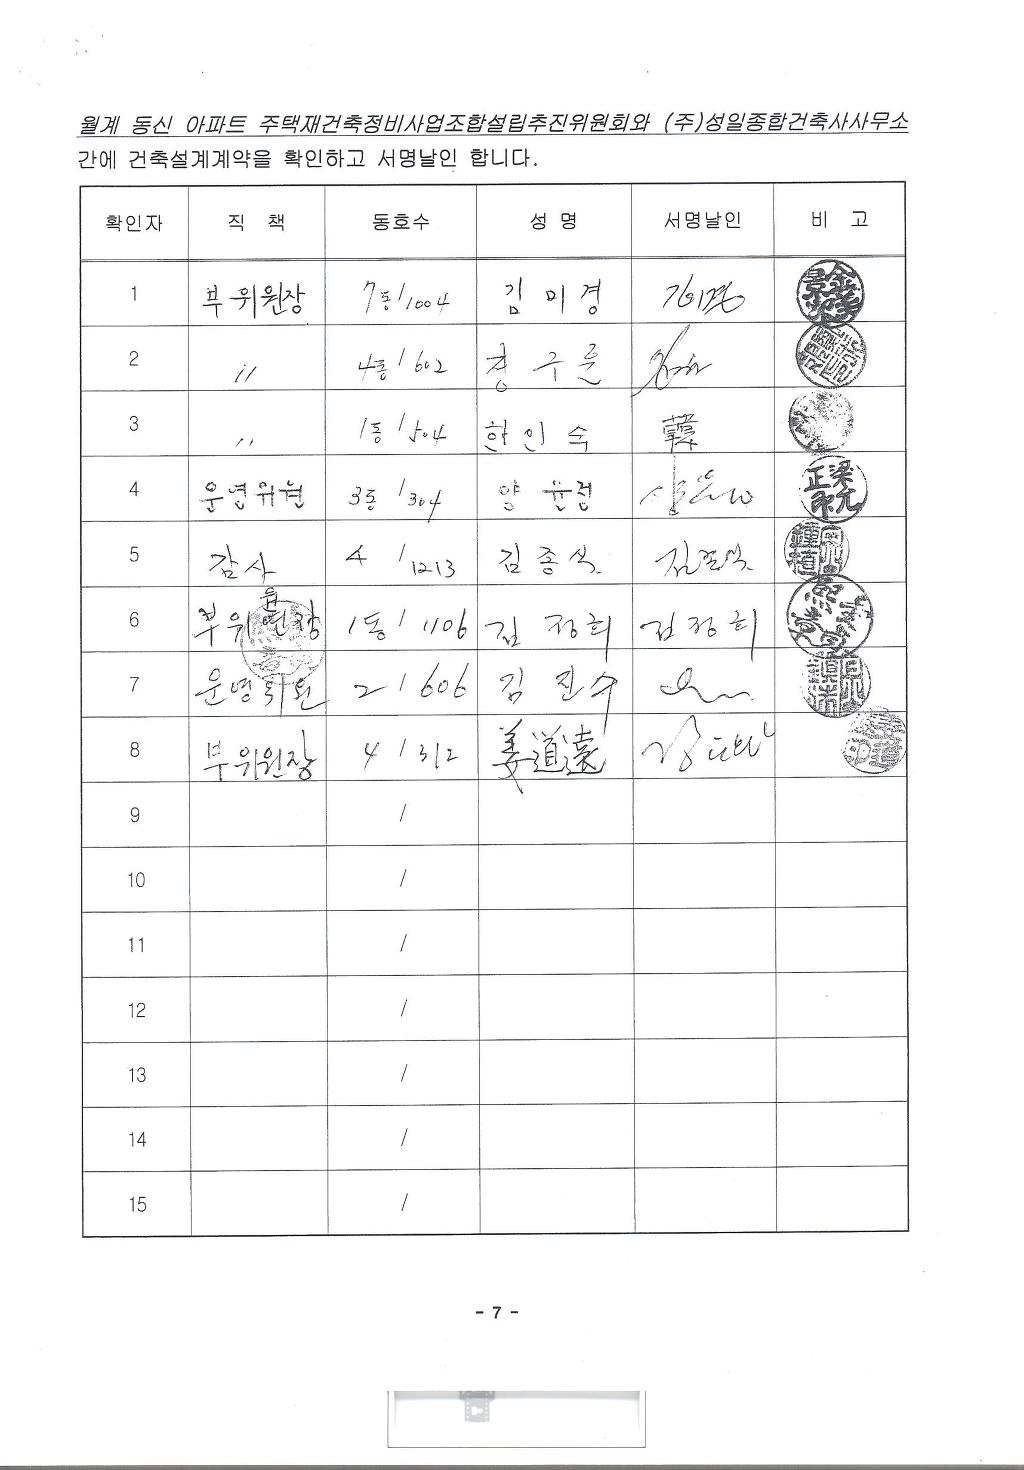 월계 동신 아파트 주택재건축정비사업조합설립추진위원회와 (주)성일종합건축사사무소
간에 건축설계계약을 확인하고 서명날인 합니다.
확인자 직 책 동호수 성 명 서명날인 비 고
1 부위원장 7동/1004 김미경
2 〃 4동/602
3 〃 1동/504 한인숙 韓
4 운영위원 3동/304 양윤정
5 감사 4/1213 김종석 김종석
6 부위원장 1동/1106 김정희 김정희
7 운영위원 2/606 김진수
8 부위원장 4/312 姜道遠
9 /
10 /
11 /
12 /
13 /
14 /
15 /
- 7 -